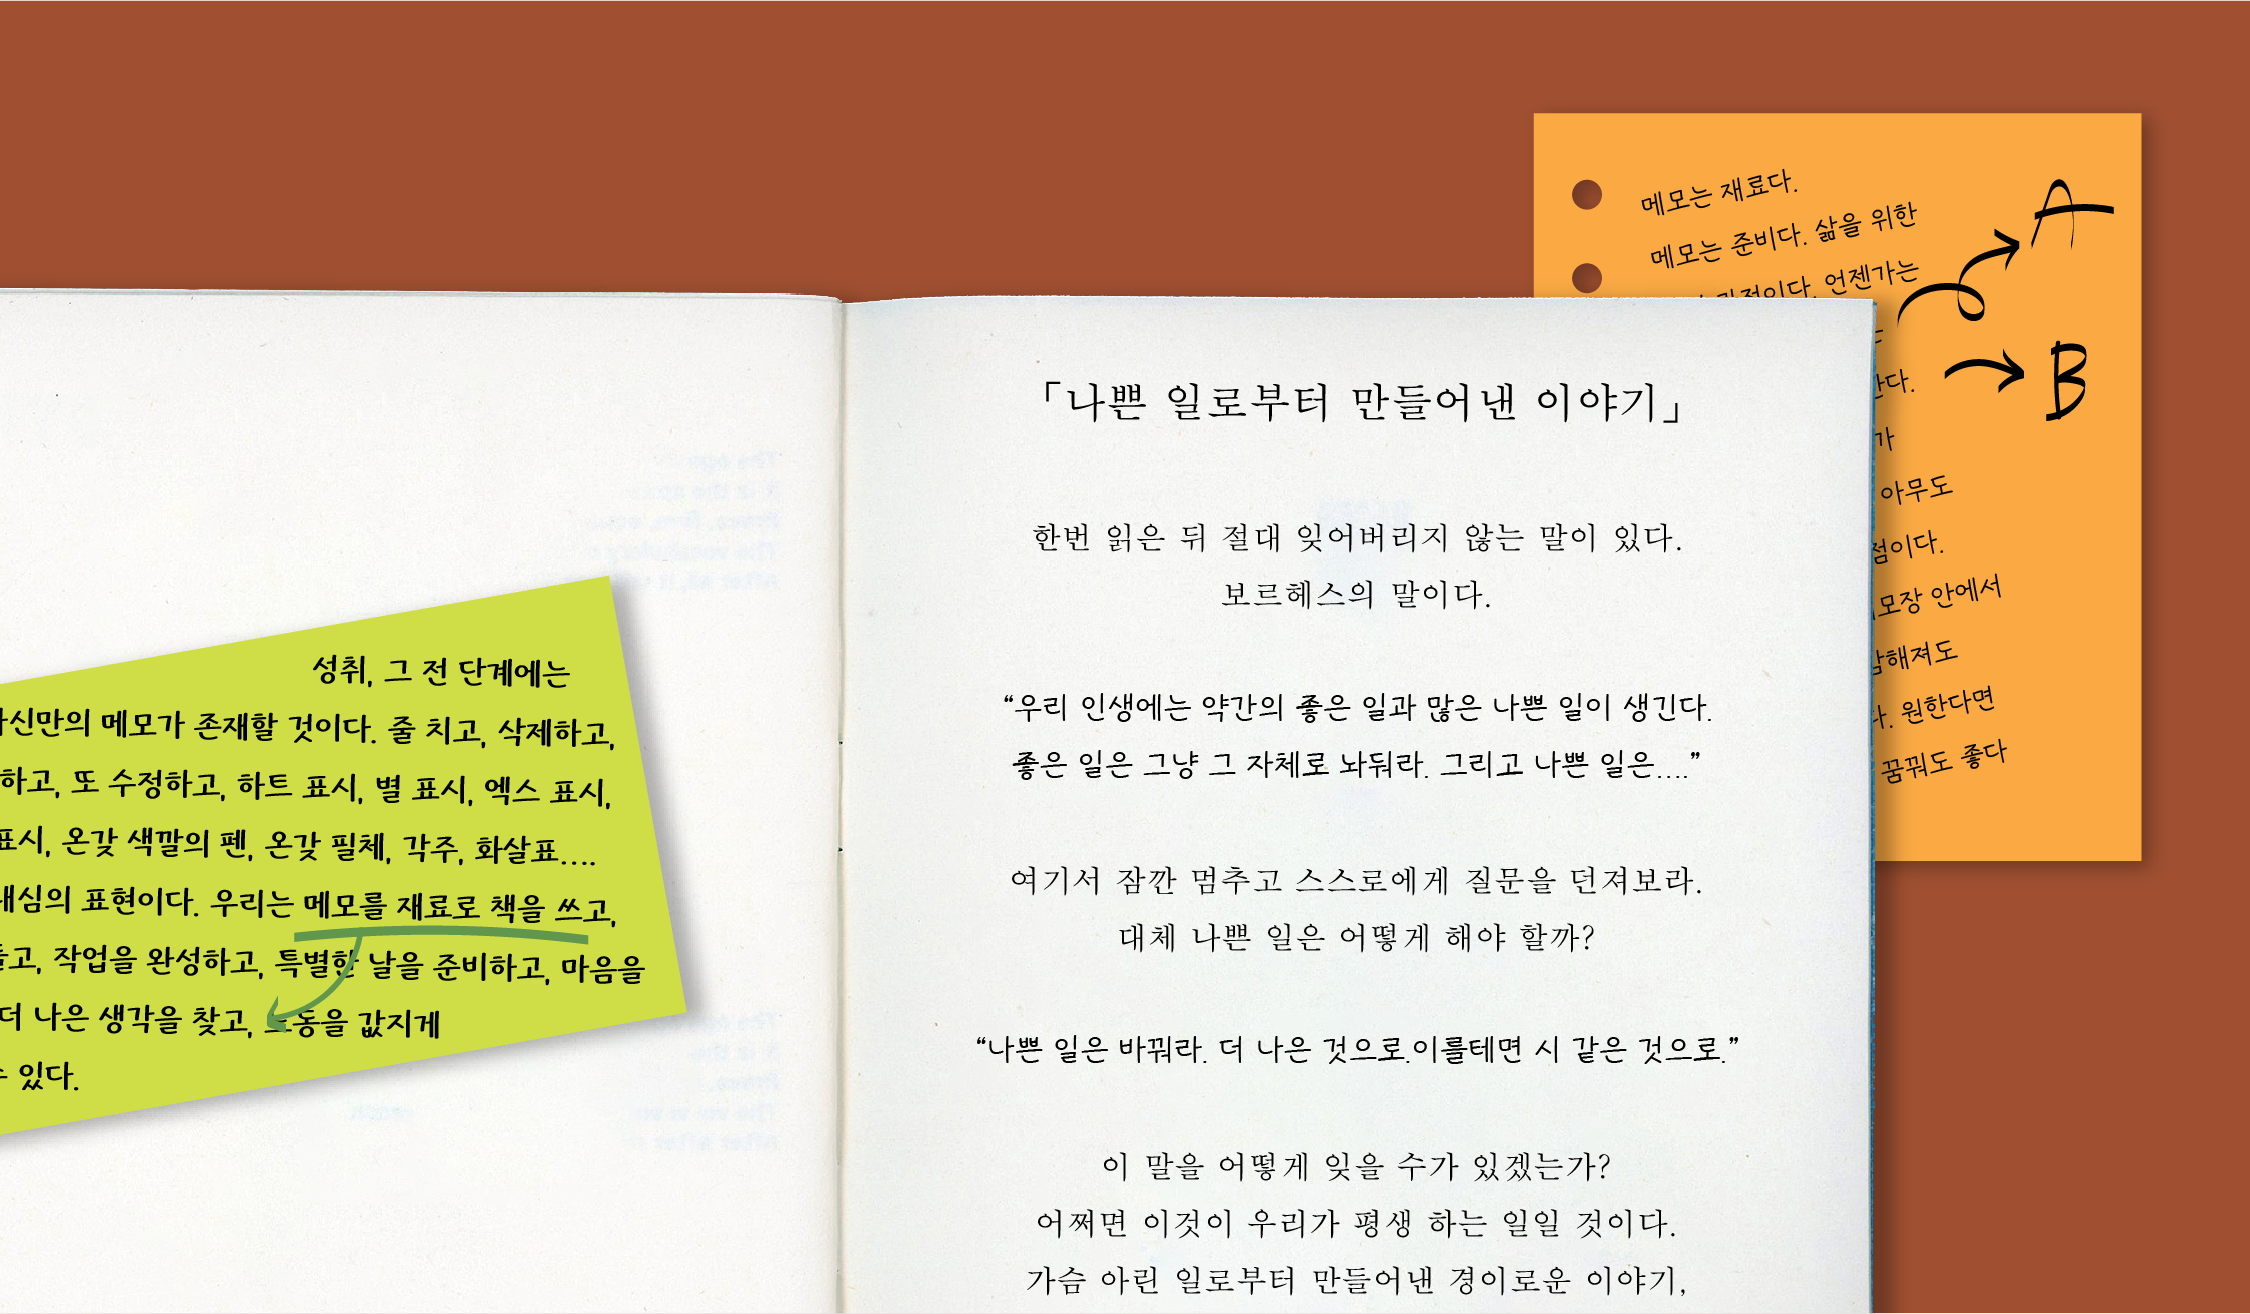 메모는 재료다.
메모는 준비다. 삶을 위한
언젠가는
A
B
가
아무도
모장 안에서
해져도
원한다면
꿈꿔도 좋다
성취, 그 전 단계에는
자신만의 메모가 존재할 것이다. 줄 치고, 삭제하고,
하고, 또 수정하고, 하트 표시, 별 표시, 엑스 표시,
표시, 온갖 색깔의 펜, 온갖 필체, 각주, 화살표....
내심의 표현이다. 우리는 메모를 재료로 책을 쓰고,
들고, 작업을 완성하고, 특별한 날을 준비하고, 마음을
더 나은 생각을 찾고, 노동을 값지게
수 있다.
「나쁜 일로부터 만들어낸 이야기」
한번 읽은 뒤 절대 잊어버리지 않는 말이 있다.
보르헤스의 말이다.
“우리 인생에는 약간의 좋은 일과 많은 나쁜 일이 생긴다.
좋은 일은 그냥 그 자체로 놔둬라. 그리고 나쁜 일은....”
여기서 잠깐 멈추고 스스로에게 질문을 던져보라.
대체 나쁜 일은 어떻게 해야 할까?
“나쁜 일은 바꿔라. 더 나은 것으로.이를테면 시 같은 것으로.”
이 말을 어떻게 잊을 수가 있겠는가?
어쩌면 이것이 우리가 평생 하는 일일 것이다.
가슴 아린 일로부터 만들어낸 경이로운 이야기,